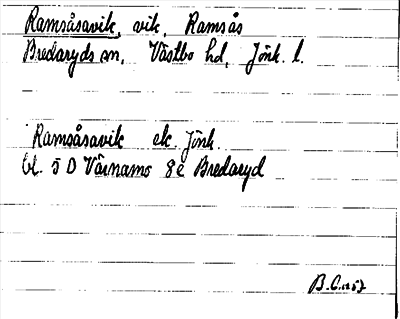 Ramsåsavik, vik, Ramsås
Bredaryds sn, Västbo hd, Jönk. l.
Ramsåsavik ek. Jönk.
bl. 5 D Värnamo 8 e Bredaryd